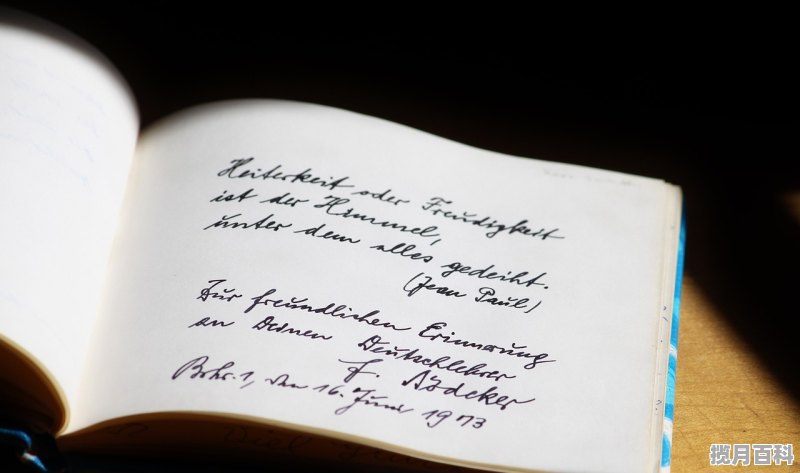 Heiterkeit oder Freudigkeit
ist der Himmel,
unter dem alles gedeiht.
(Jean Paul)
Zur freundlichen Erinnerung
an Deinen Deutschlehrer
F. Bödeker
den 16. Juni 1973
揽月百科